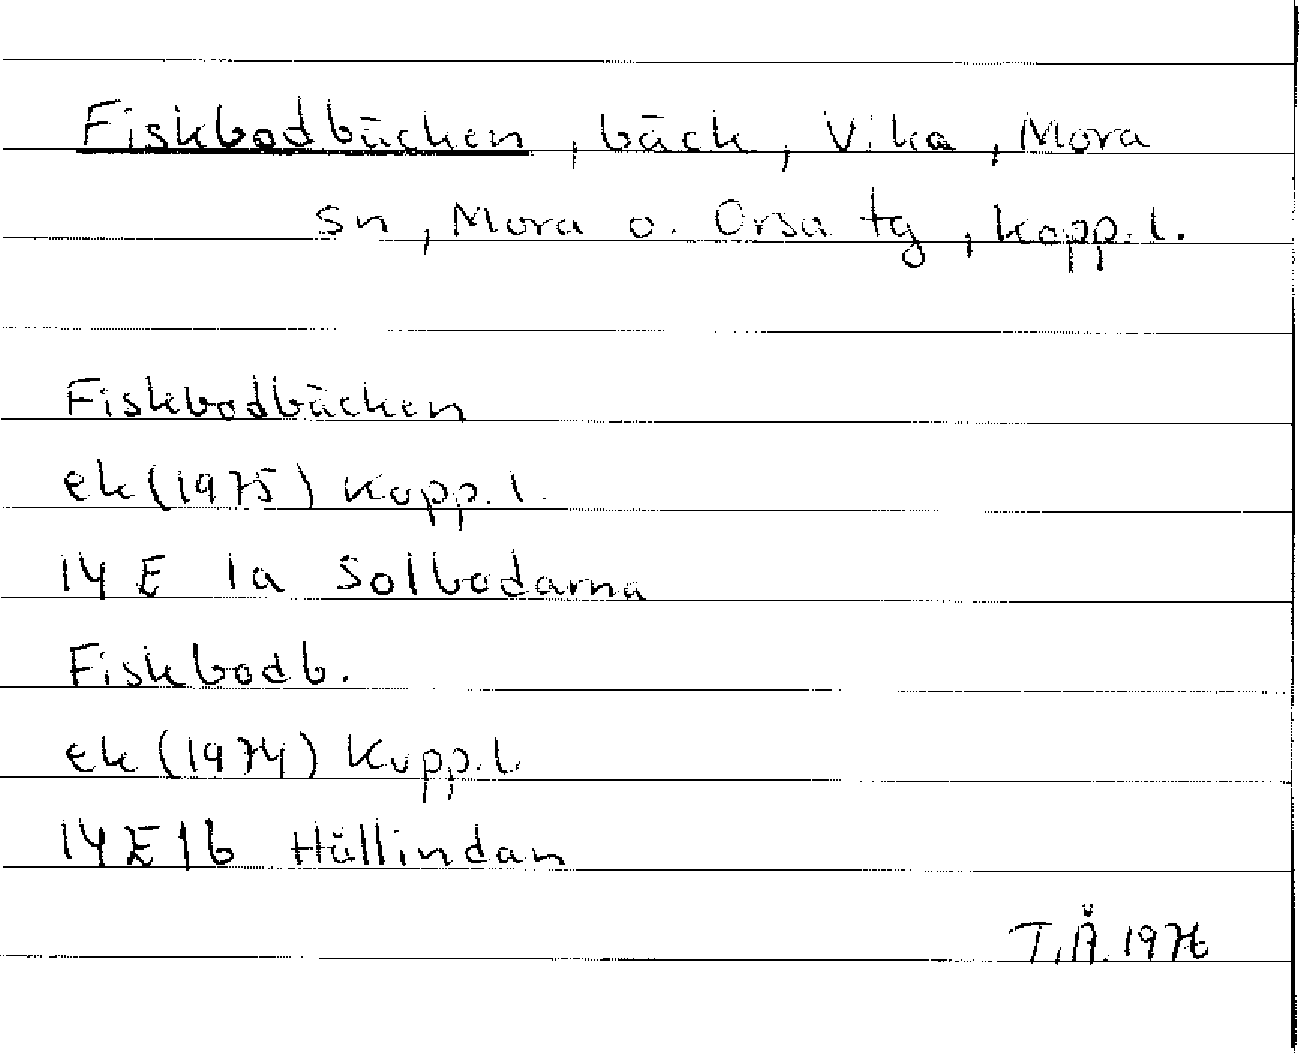 Fiskbodbäcken, bäck, Vika, Mora
sn, Mora o. Orsa tg, Kopp. l.
Fiskbodbäcken
ek (1975) Kopp. l.
14 E 1a Solbodarna
Fiskbodb.
ek (1974) Kopp. l.
14 E 1b Hällindan
T.Å. 1976